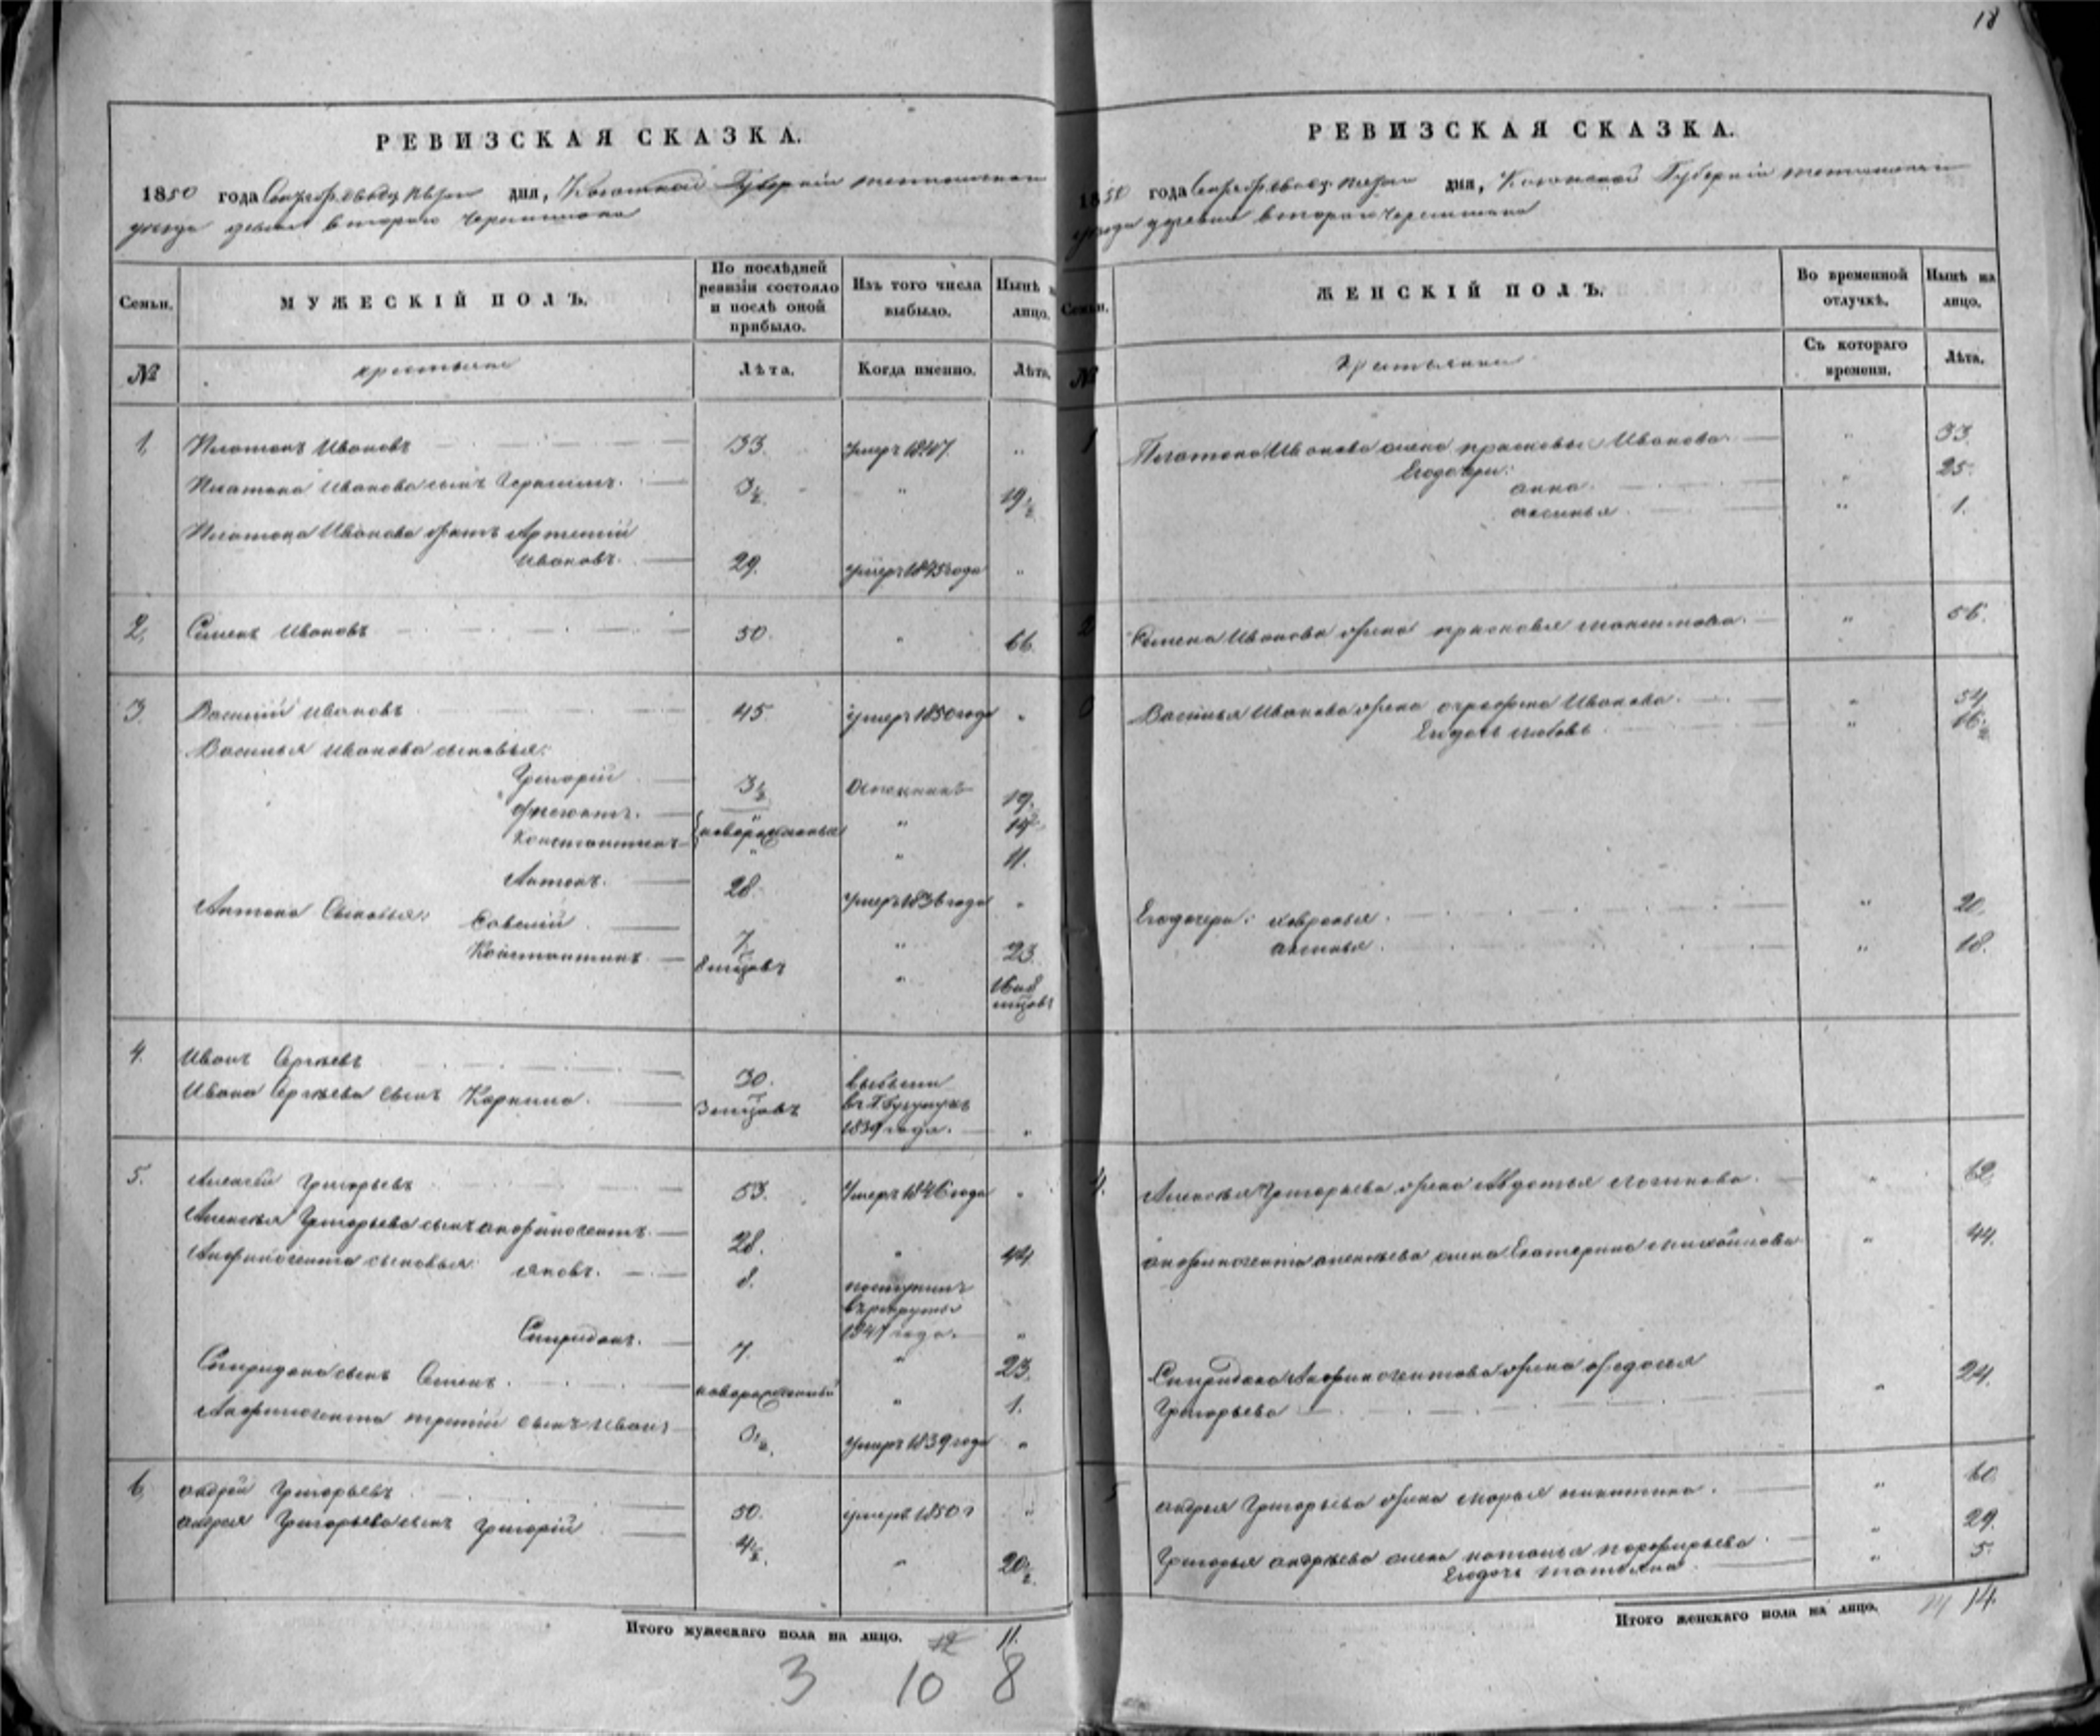 18
РЕВИЗСКАЯ СКАЗКА.
1850 года дня, Казанской Губерніи
уезда втораго
Семьи. МУЖЕСКІЙ ПОЛЪ. По послѣдней ревизіи состояло и послѣ оной прибыло. Изъ того числа выбыло. Нынѣ на лицо.
№ крестьяне Лѣта. Когда именно. Лѣта.
1. Платонъ Ивановъ 33. умеръ 1847. "
Платона Иванова сынъ Герасимъ. 3½ " 19½
Платона Иванова братъ Артемій
Ивановъ. 29. умеръ 1845 года "
2. Семенъ Ивановъ 50. " 66.
3. Василій Ивановъ 45. умеръ 1850 года "
Василья Иванова сыновья:
Григорій 3½ 19.
"
Константинъ новорожденныя " 11.
Антонъ. 28. умеръ 1836 года "
Антона Сыновья: Савелій 7. " 23.
Константинъ 8 мѣсцовъ " 16 и 8
мѣсцовъ
4. Иванъ Сергѣевъ 30. выбыли
Ивана Сергѣева сынъ 3 мѣсцовъ
1839 года. "
5. Алексѣй Григорьевъ 53. Умеръ 1846 года "
Алексѣя Григорьева сынъ Анфиногентъ. 28. " 44.
Анфиногента сыновья: Яковъ. 8. поступилъ
въ рекруты
1847 года. "
Спиридонъ. 7. " 23.
Спиридона сынъ Семенъ. новорожденный " 1.
Анфиногента третій сынъ Иванъ умеръ 1839 года "
6. Андрей Григорьевъ 50. умеръ 1850 г "
Андрея Григорьева сынъ Григорій 4½. " 20½.
Итого мужескаго пола на лицо. 12 11.
3 10 8
РЕВИЗСКАЯ СКАЗКА.
1850 года дня, Казанской Губерніи
уезда деревни втораго
Семьи. ЖЕНСКІЙ ПОЛЪ. Во временной отлучкѣ. Нынѣ на лицо.
№ Крестьянки Съ котораго времени. Лѣта.
1 Платона Иванова жена Прасковья Иванова. " 33.
Его дочери:
Анна. " 25.
Аксинья. " 1.
2 Семена Иванова жена Прасковья Максимова. " 56.
Василья Иванова жена Иванова. " 54.
Его дочь "
Его дочери: " 20.
Аксинья. " 18.
4. Алексѣя Григорьева жена Авдотья Логинова. " 62.
Анфиногента Алексѣева жена Екатерина Михайлова " 44.
Спиридона Анфиногентова жена Федосья
Григорьева " 24.
5 Андрея Григорьева жена Марья Никитина. " 60.
Григорья Андрѣева жена Наталья Порфирьева " 29.
Его дочь Татьяна " 5.
Итого женскаго пола на лицо. 14 14.